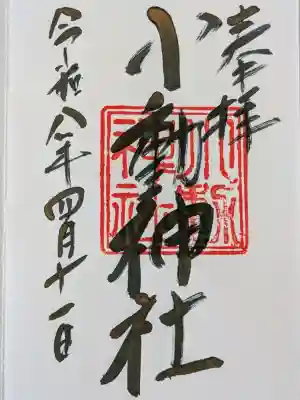 奉拝
小動神社
小動神社
令和八年四月十一日